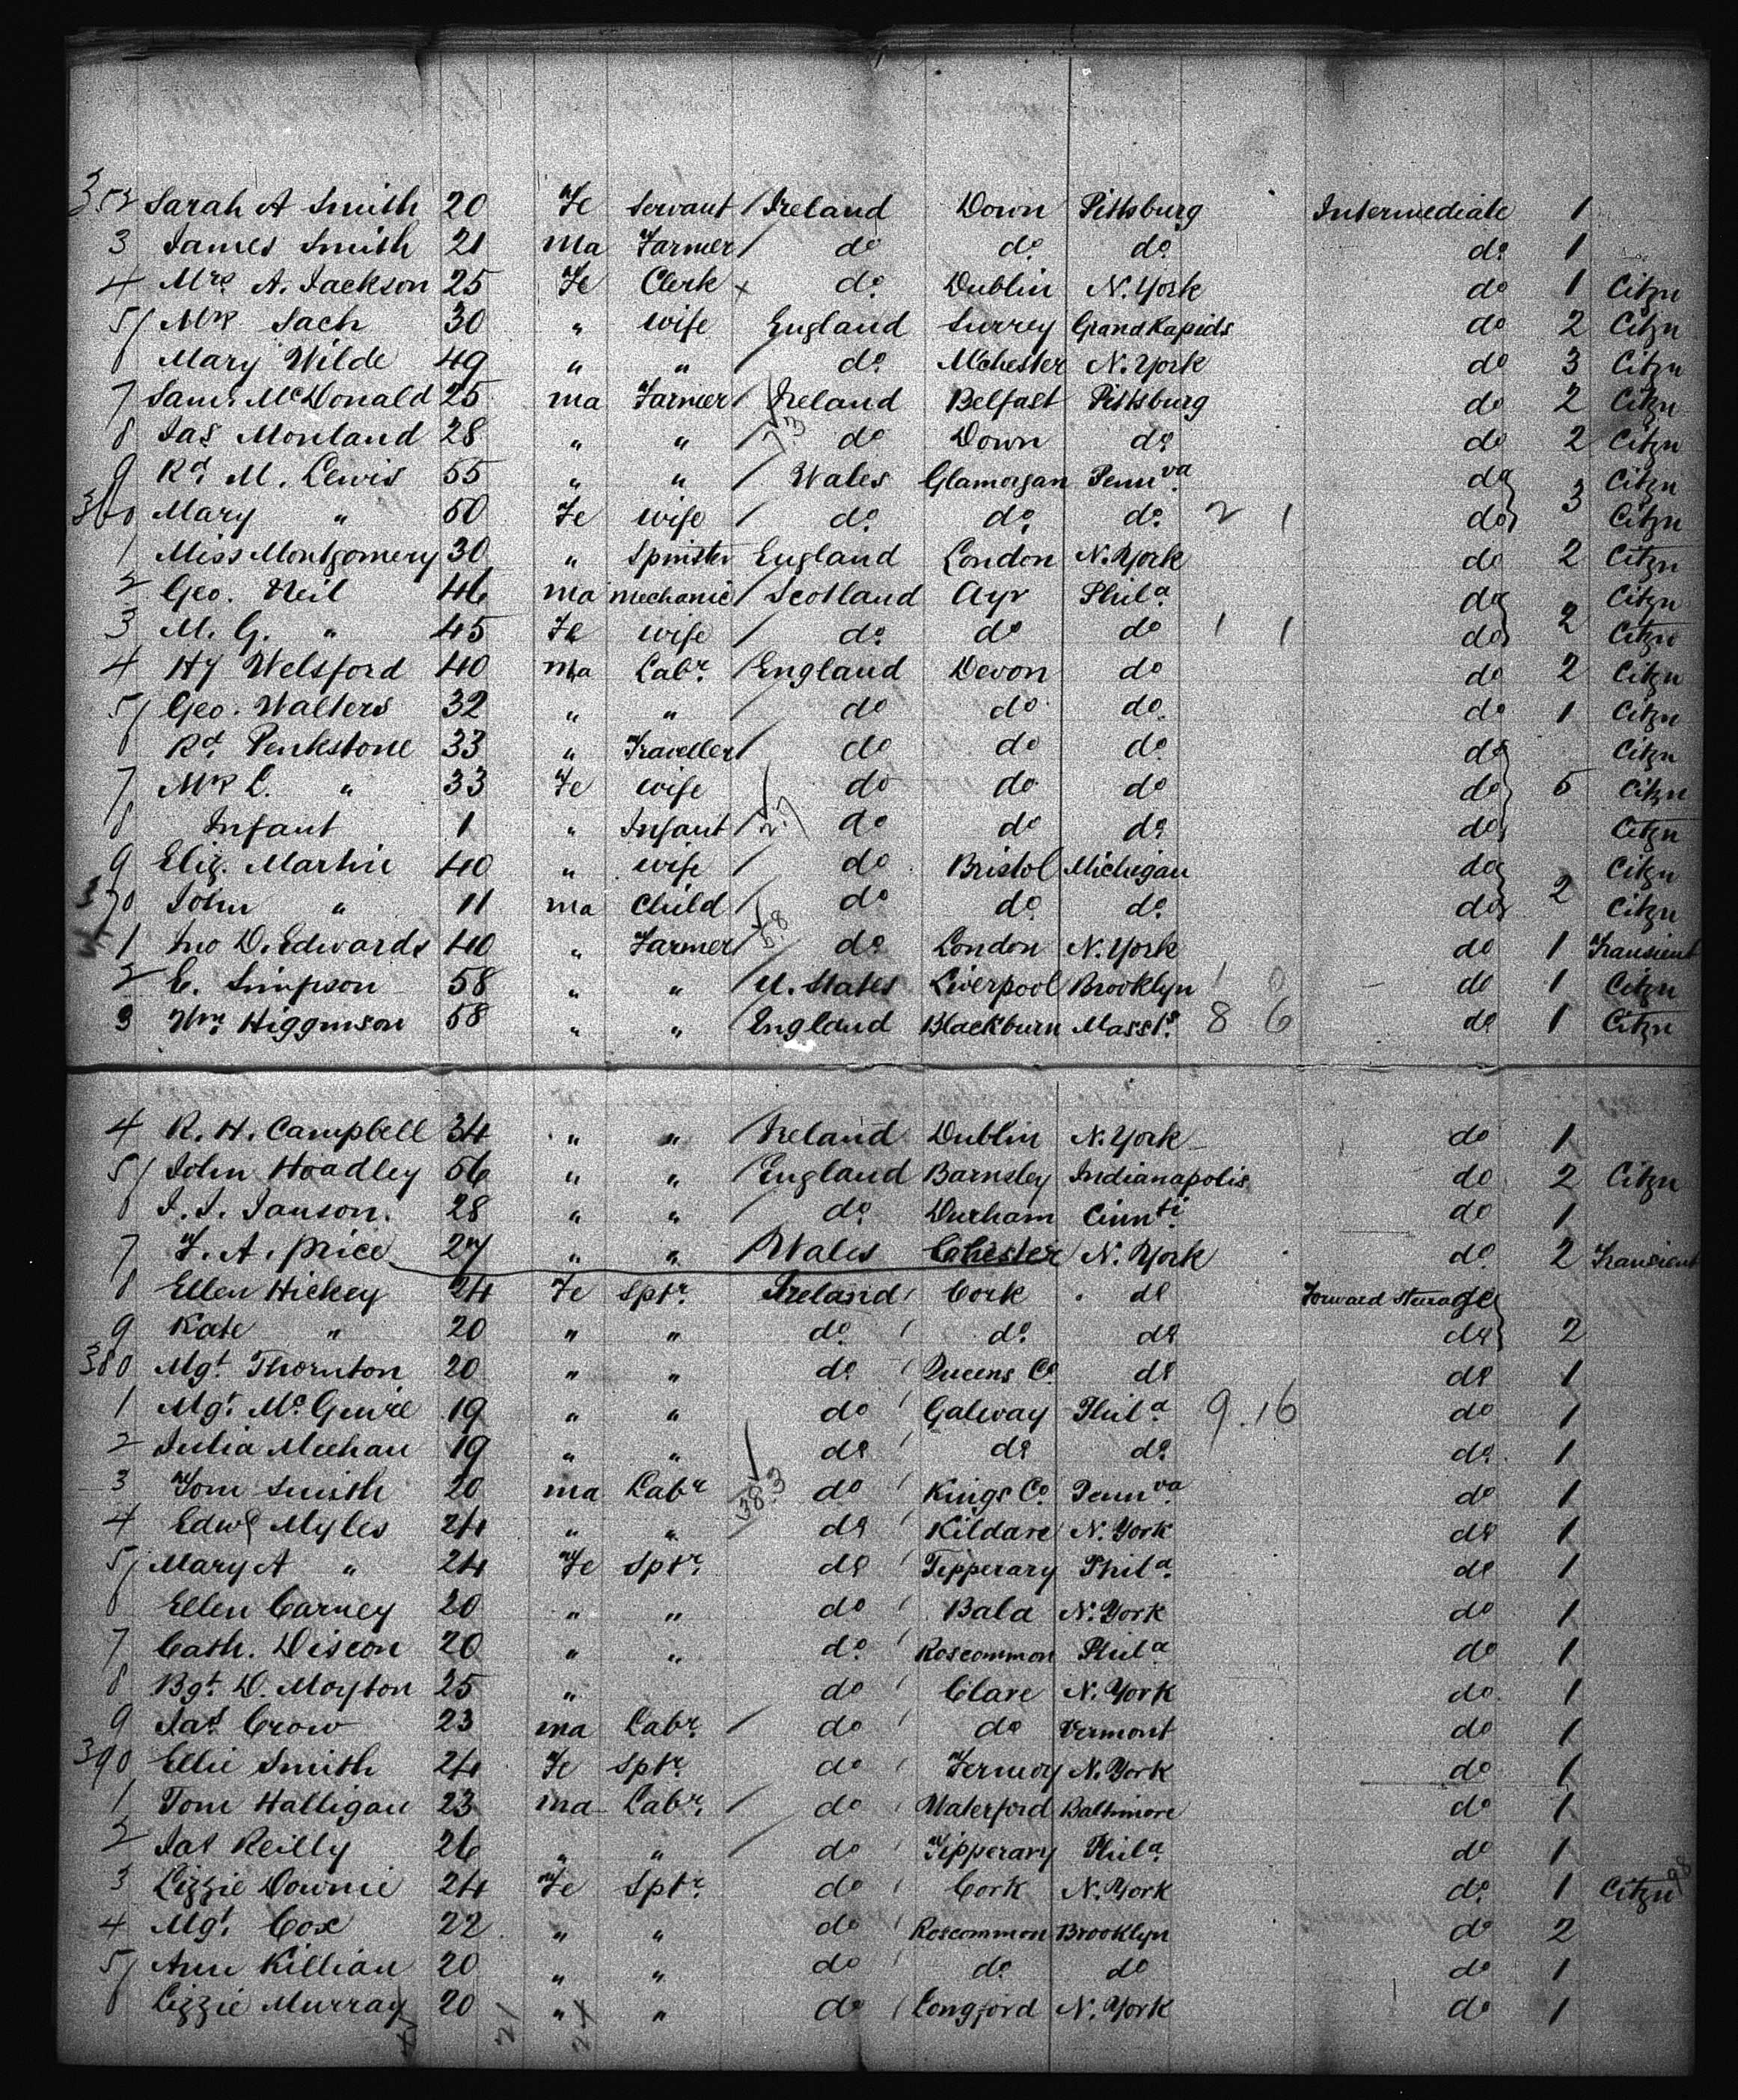 352 Sarah A Smith 20 Fe Servant / Ireland Down Pittsburg Intermediate 1
3 James Smith 21 Ma Farmer / do do do do 1
4 Mrs A. Jackson 25 Fe Clerk x do Dublin N. York do 1 Citzn
5 Mrs Sach 30 " Wife England Surrey Grand Rapids do 2 Citzn
6 Mary Wilde 49 " " / do Mchester N. York do 3 Citzn
7 Saml McDonald 25 ma Farmer / Ireland Belfast Pittsburg do 2 Citzn
8 Jas Morland 28 " " / do Down do do 2 Citzn
9 Rd M. Lewis 55 " " / Wales Glamorgan Pennva do Citzn
360 Mary " 50 Fe Wife / do do do 2 1 do 3 Citzn
1 Miss Montgomery 30 " Spinster England London N. York do 2 Citzn
2 Geo. Neil 46 ma Mechanic / Scotland Ayr Phila do Citzn
3 M. G. " 45 Fe Wife / do do do 1 1 do 2 Citzn
4 Hy Welsford 40 ma Labr / England Devon do do 2 Citzn
5 Geo. Walters 32 " " / do do do do 1 Citzn
6 Rd Penkstone 33 " Traveller / do do do do Citzn
7 Mrs L. " 33 Fe Wife do do do do 5 Citzn
8 Infant 1 " Infant / do do do do Citzn
9 Eliz. Martin 40 " Wife / do Bristol Michigan do Citzn
370 John " 11 ma Child / do do do do 2 Citzn
1 Jno D. Edwards 40 " Farmer / do London N. York do 1 Transient
2 E. Simpson 58 " " / U. States Liverpool Brooklyn 1 0 do 1 Citzn
3 Wm Higginson 58 " " / England Blackburn Massts 8 6 do 1 Citzn
4 R. H. Campbell 34 " " / Ireland Dublin N. York do 1
5 John Hoadley 56 " " / England Barnsley Indianapolis do 2 Citzn
6 J. J. Janson. 28 " " / do Durham Cinnti do 1
7 F. A. Price 27 " " / Wales Chester N. York do 2 Transient
8 Ellen Hickey 24 Fe Sptr. Ireland Cork do Forward Sterage
9 Kate " 20 " " do do do do 2
380 Mgt Thornton 20 " " do Queens Co do do 1
1 Mgt McGuire 19 " " do Galway Phila 9 . 16 do 1
2 Julia Meehan 19 " " do do do do 1
3 Tom Smith 20 ma Labr do Kings Co Pennva do 1
4 Edwd Myles 24 " " do Kildare N. York do 1
5 Mary A " 24 Fe Sptr. do Tipperary Phila do 1
6 Ellen Carney 20 " " do Bala N. York do 1
7 Cath. Discon 20 " " do Roscommon Phila do 1
8 Bgt D. Moyton 25 " do Clare N. York do 1
9 Jas Crow 23 ma Labr. / do do Vermont do 1
390 Ellie Smith 24 Fe Sptr. do Fermoy N. York do 1
1 Tom Halligan 23 ma Labr. / do Waterford Baltimore do 1
2 Jas Reilly 26 " " / do Tipperary Phila do 1
3 Lizzie Downie 24 Fe Sptr. do Cork N. York do 1 Citzn
4 Mgt Cox 22 " " do Roscommon Brooklyn do 2
5 Ann Killian 20 " " do do do do 1
6 Lizzie Murray 20 " " do Longford N. York do 1